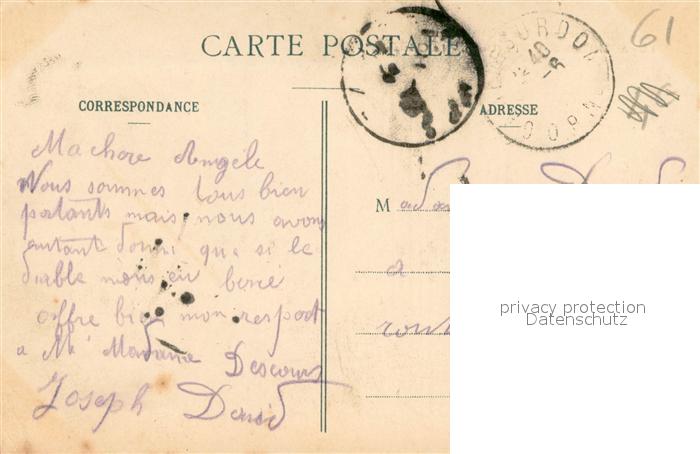 CARTE POSTALE
61
CORRESPONDANCE
ADRESSE
Ma chere Angèle
Nous sommes tous bien
portants mais nous avons
autant dormi que si le
diable nous en
offre bien mon respect
a Mr Madame Descours
Joseph David
M
a
privacy protection
Datenschutz